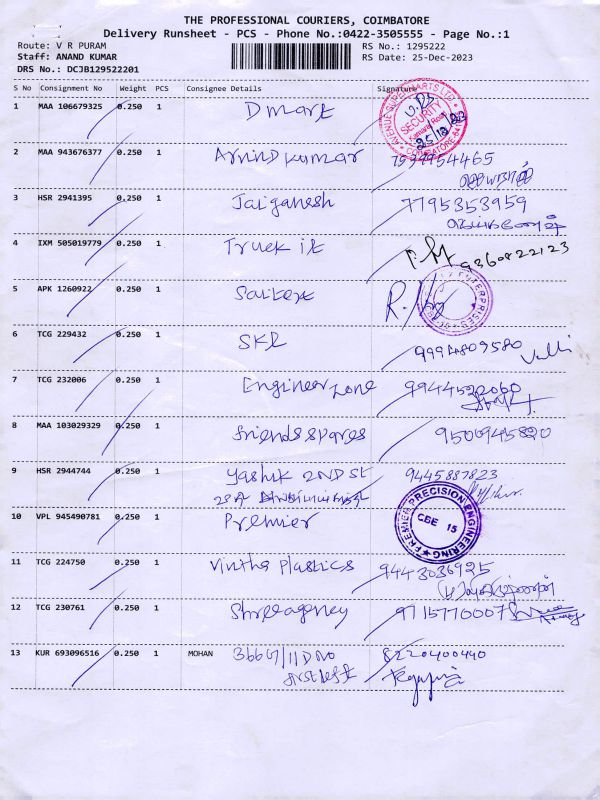 THE PROFESSIONAL COURIERS, COIMBATORE
Delivery Runsheet - PCS - Phone No.:0422-3505555 - Page No.:1
Route: V R PURAM
RS No.: 1295222
Staff: ANAND KUMAR
RS Date: 25-Dec-2023
DRS No.: DCJB129522201
S No Consignment No Weight PCS Consignee Details Signature
1 MAA 106679325 0.250 1 Dmart
SECURITY
25/12/23
2 MAA 943676377 0.250 1 Arvind kumar 7539954465
3 HSR 2941395 0.250 1 Jaiganesh 7795353959
4 IXM 505019779 0.250 1 Truck it 9360822123
5 APK 1260922 0.250 1
ENTERPRISES
6 TCG 229432 0.250 1 SKL 9994809580 Valli
7 TCG 232006 0.250 1 Engineer zone 9944522060
8 MAA 103029329 0.250 1 friends spares 9500945820
9 HSR 2944744 0.250 1 Yashik 2ND St 9445887823
10 VPL 945490781 0.250 1 Premier
PREMIER PRECISION ENGINEERING
CBE 15
11 TCG 224750 0.250 1 Vintha Plastics 9443036925
12 TCG 230761 0.250 1 Shree agency 9715770007
13 KUR 693096516 0.250 1 MOHAN 366G/11 D No 8220400440
first left